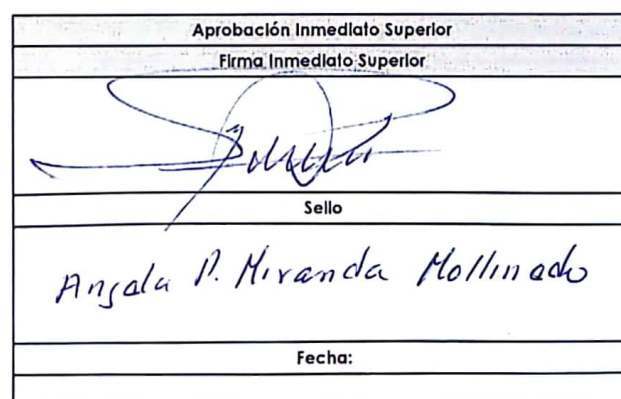 Aprobación Inmediato Superior
Firma Inmediato Superior
Sello
Angela P. Miranda Mollinedo
Fecha: